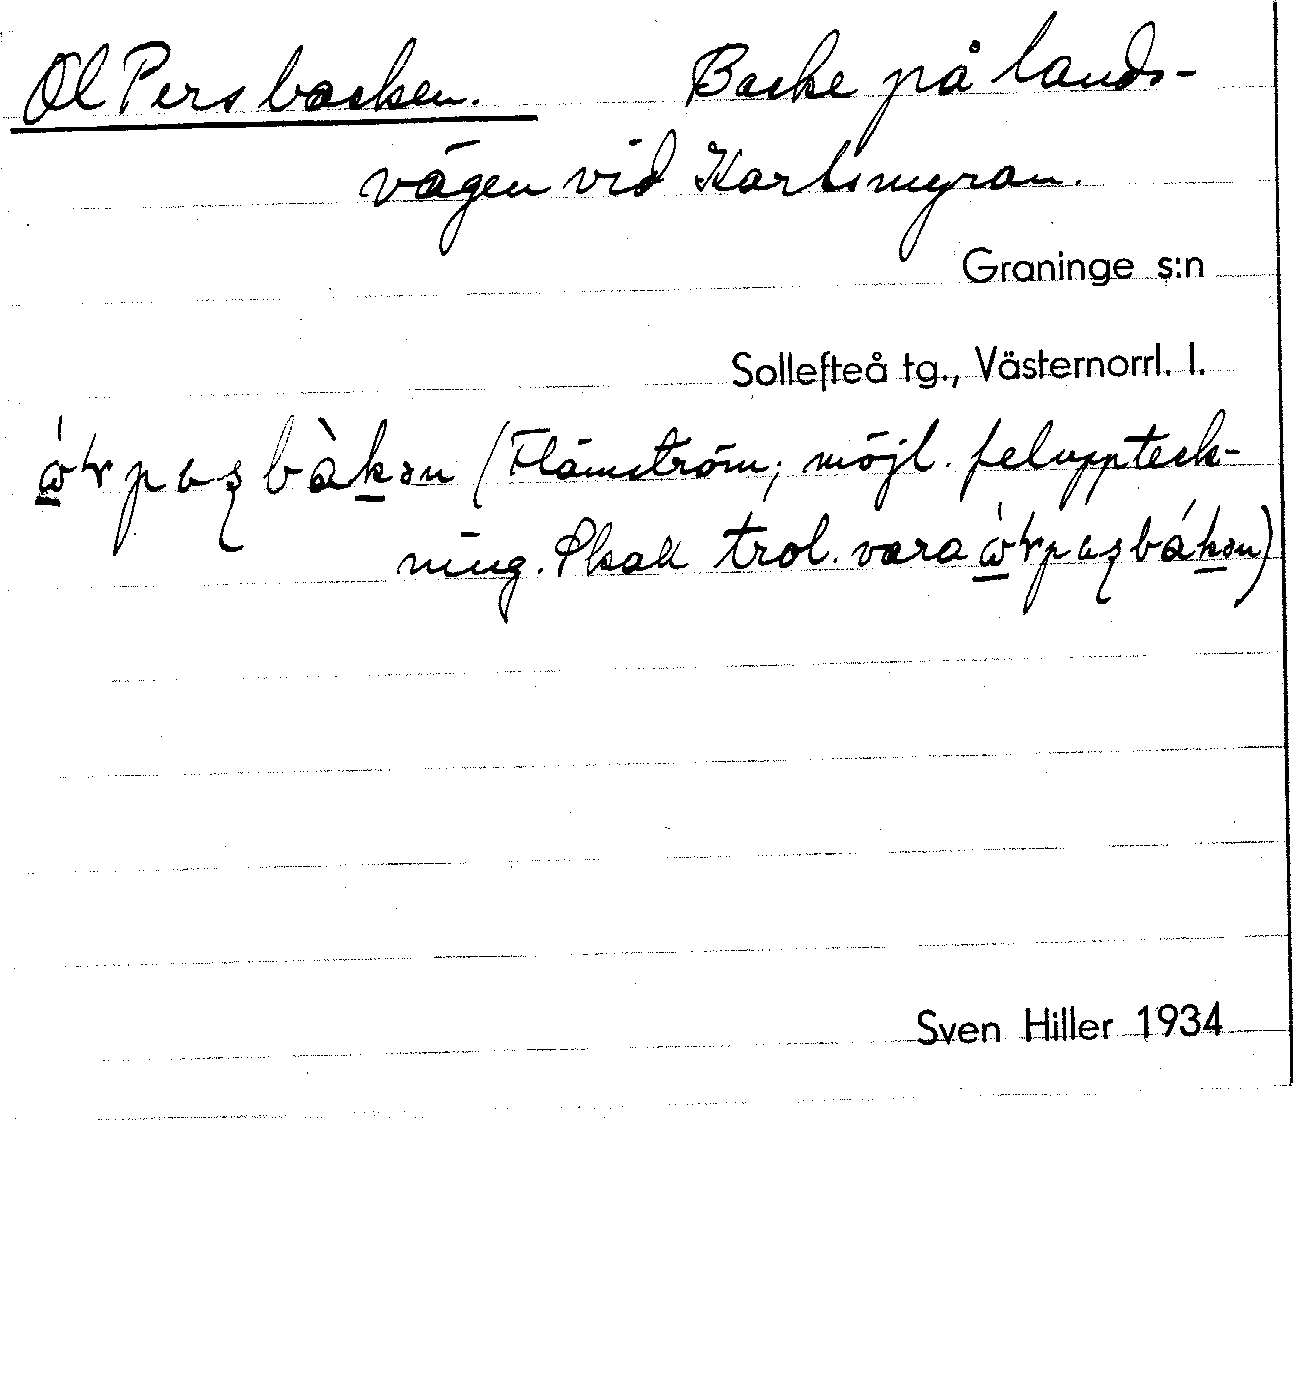 Ol Persbacken. Backe på lands-
vägen vid Karlsmyran.
Graninge s:n
Sollefteå tg., Västernorrl. l.
(Flämström; möjl. feluppteck-
ning. Skall trol. vara
Sven Hiller 1934